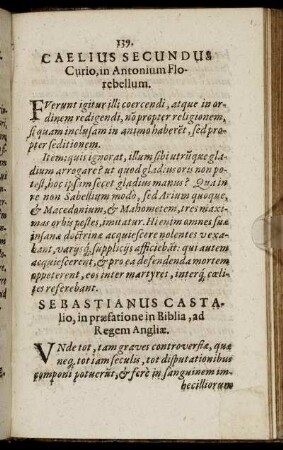 139.
CAELIUS SECUNDUS
Curio, in Antonium Flo-
rebellum.
FVerunt igitur illi coercendi, atque in or-
dinem redigendi, nõ propter religionem,
si quam inclusam in animo haberēt, sed pro-
pter seditionem.
Item: quis ignorat, illum sibi utrũque gla-
dium arrogare? ut quod gladius oris non po-
test, hoc ipsum secet gladius manus? Qua in
re non Sabellium modo, sed Arium quoque,
& Macedonium, & Mahometem, tres maxi-
mas orbis pestes, imitatur. Hi enim omnes suæ
insanæ doctrinæ acquiescere nolentes vexa-
bant, varijsq́; supplicijs afficiebāt: qui autem
acquiescerent, & pro ea defendenda mortem
oppeterent, eos inter martyres, interq́; cœli-
tes referebant.
SEBASTIANUS CASTA-
lio, in præfatione in Biblia, ad
Regem Angliæ.
VNde tot, tam graves controversiæ, quæ
neq́; tot iam seculis, tot disputationibus
componi potuerūt, & ferè in sanguinem im-
becilliorum